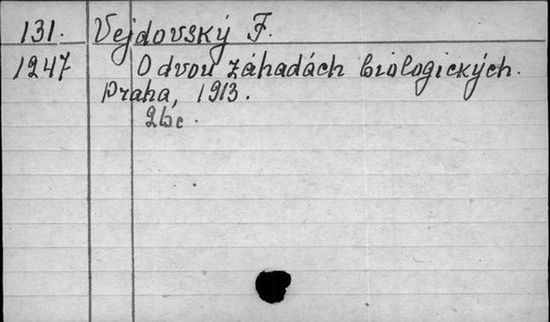 131. Vejdovský F.
1247 O dvou záhadách biologických.
Praha, 1913.